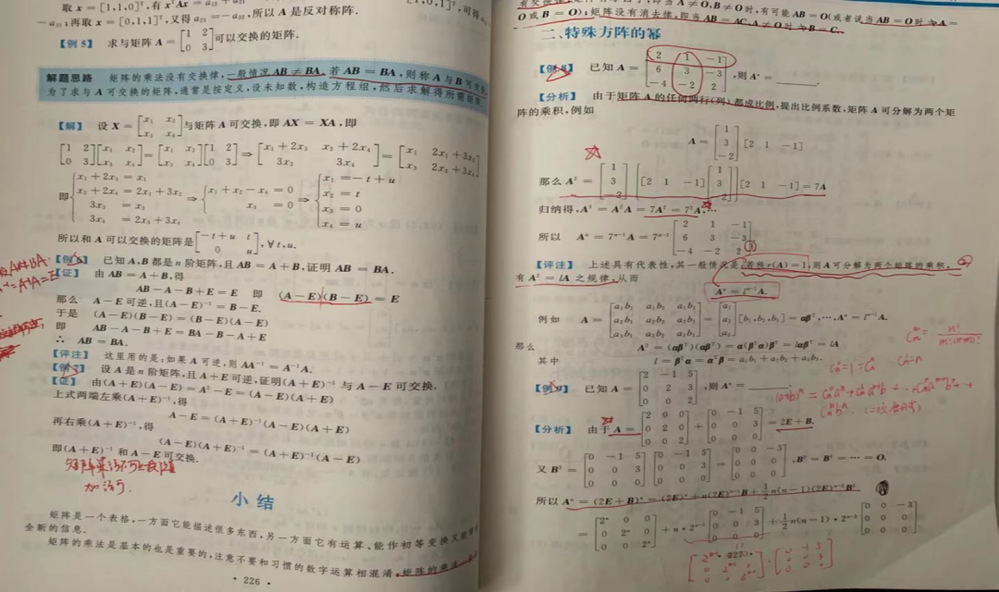 取 x = [1,1,0]ᵀ, 有 xᵀAx =
再取 x = [0,1,1]ᵀ, 又得 a₂₃ = −a₃₂, 所以 A 是反对称阵.
【例 5】 求与矩阵 A = [1 2; 0 3] 可以交换的矩阵.
解题思路 矩阵的乘法没有交换律, 一般情况 AB ≠ BA. 若 AB = BA, 则称 A 与 B 可交
为了求与 A 可交换的矩阵, 通常是按定义, 设未知数, 构造方程组, 然后求解得所需矩阵.
【解】 设 X = [x₁ x₂; x₃ x₄] 与矩阵 A 可交换, 即 AX = XA, 即
[1 2; 0 3][x₁ x₂; x₃ x₄] = [x₁ x₂; x₃ x₄][1 2; 0 3] ⇒ [x₁ + 2x₃ x₂ + 2x₄; 3x₃ 3x₄] = [x₁ 2x₁ + 3x₂; x₃ 2x₃ + 3x₄]
即 { x₁ + 2x₃ = x₁
x₂ + 2x₄ = 2x₁ + 3x₂
3x₃ = x₃
3x₄ = 2x₃ + 3x₄
⇒ { x₁ + x₂ − x₄ = 0
x₃ = 0
⇒ { x₁ = −t + u
x₂ = t
x₃ = 0
x₄ = u
所以和 A 可以交换的矩阵是 [−t + u t; 0 u], ∀ t, u.
已知 A, B 都是 n 阶矩阵, 且 AB = A + B, 证明 AB = BA.
【证】 由 AB = A + B, 得
AB − A − B + E = E 即 (A − E)(B − E) = E
那么 A − E 可逆, 且 (A − E)⁻¹ = B − E.
于是 (A − E)(B − E) = (B − E)(A − E)
即 AB − A − B + E = BA − B − A + E
∴ AB = BA.
【评注】 这里用的是: 如果 A 可逆, 则 AA⁻¹ = A⁻¹A.
【例 7】 设 A 是 n 阶矩阵, 且 A + E 可逆, 证明 (A + E)⁻¹ 与 A − E 可交换.
【证】 由 (A + E)(A − E) = A² − E = (A − E)(A + E)
上式两端左乘 (A + E)⁻¹, 得
A − E = (A + E)⁻¹(A − E)(A + E)
再右乘 (A + E)⁻¹, 得
(A − E)(A + E)⁻¹ = (A + E)⁻¹(A − E)
即 (A + E)⁻¹ 和 A − E 可交换.
加法可.
小结
矩阵是一个表格, 一方面它能描述很多东西, 另一方面它有运算、能作初等变换又能
全新的信息.
矩阵的乘法是基本的也是重要的, 注意不要和习惯的数字运算相混淆, 矩阵的乘法
· 226 ·
A ≠ O, B ≠ O 时, 有可能 AB = O (或者说当 AB = O 时 A =
O 或 B = O); 矩阵没有消去律, 即当 AB = AC, A ≠ O 时 B = C.
二、特殊方阵的幂
【例 8】 已知 A = [2 1 −1; 6 3 −3; −4 −2 2], 则 Aⁿ = ______.
【分析】 由于矩阵 A 的任何两行(列)都成比例, 提出比例系数, 矩阵 A 可分解为两个矩
阵的乘积, 例如
A = [1; 3; −2] [2 1 −1]
那么 A² = [1; 3; −2] [2 1 −1] [1; 3; −2] [2 1 −1] = 7A
归纳得, A³ = A²A = 7A² = 7²A, …
所以 Aⁿ = 7ⁿ⁻¹A = 7ⁿ⁻¹ [2 1 −1; 6 3 −3; −4 −2 2]
【评注】 上述具有代表性, 其一般情况是, 若秩 r(A) = 1, 则 A 可分解为两个矩阵的乘积,
有 A² = lA 之规律, 从而
Aⁿ = lⁿ⁻¹A.
例如 A = [a₁b₁ a₁b₂ a₁b₃; a₂b₁ a₂b₂ a₂b₃; a₃b₁ a₃b₂ a₃b₃] = [a₁; a₂; a₃] [b₁, b₂, b₃] = αβᵀ, …, Aⁿ = lⁿ⁻¹A.
那么 A² = (αβᵀ)(αβᵀ) = α(βᵀα)βᵀ = lαβᵀ = lA
其中 l = βᵀα = αᵀβ = a₁b₁ + a₂b₂ + a₃b₃.
【例 9】 已知 A = [2 −1 5; 0 2 3; 0 0 2], 则 Aⁿ = ______.
【分析】 由于 A = [2 0 0; 0 2 0; 0 0 2] + [0 −1 5; 0 0 3; 0 0 0] = 2E + B.
又 B² = [0 −1 5; 0 0 3; 0 0 0] [0 −1 5; 0 0 3; 0 0 0] = [0 0 −3; 0 0 0; 0 0 0], B³ = B⁴ = … = O.
所以 Aⁿ = (2E + B)ⁿ = (2E)ⁿ + n(2E)ⁿ⁻¹B + ½n(n − 1)(2E)ⁿ⁻²B²
= [2ⁿ 0 0; 0 2ⁿ 0; 0 0 2ⁿ] + n · 2ⁿ⁻¹ [0 −1 5; 0 0 3; 0 0 0] + ½n(n − 1) · 2ⁿ⁻² [0 0 −3; 0 0 0; 0 0 0]